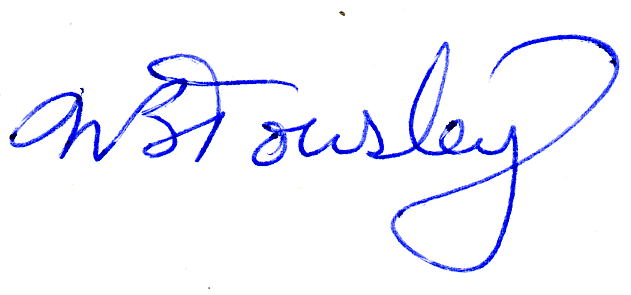 WB Tousley